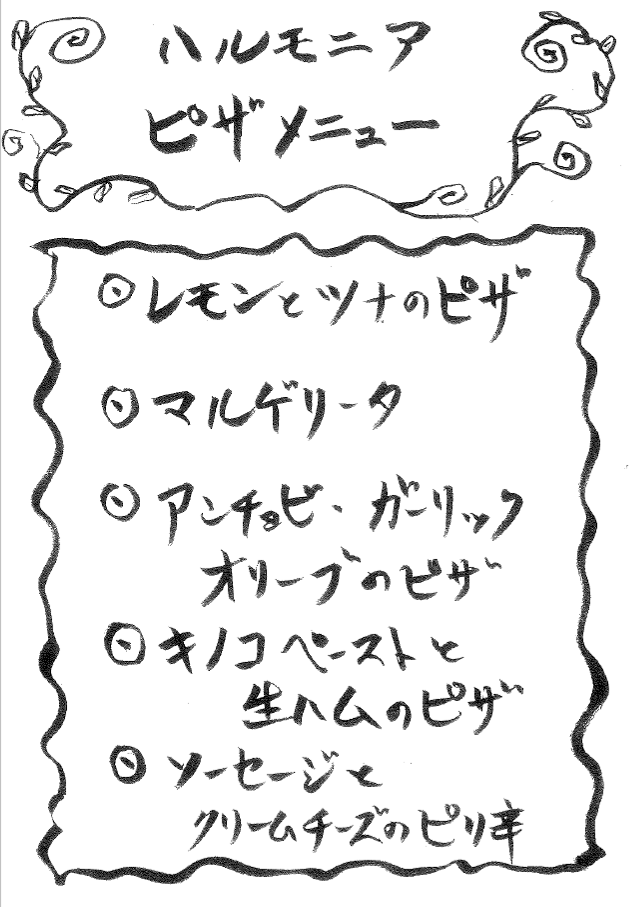 ハルモニア
ピザメニュー
レモンとツナのピザ
マルゲリータ
アンチョビ・ガーリック
オリーブのピザ
キノコペーストと
生ハムのピザ
ソーセージと
クリームチーズのピリ辛